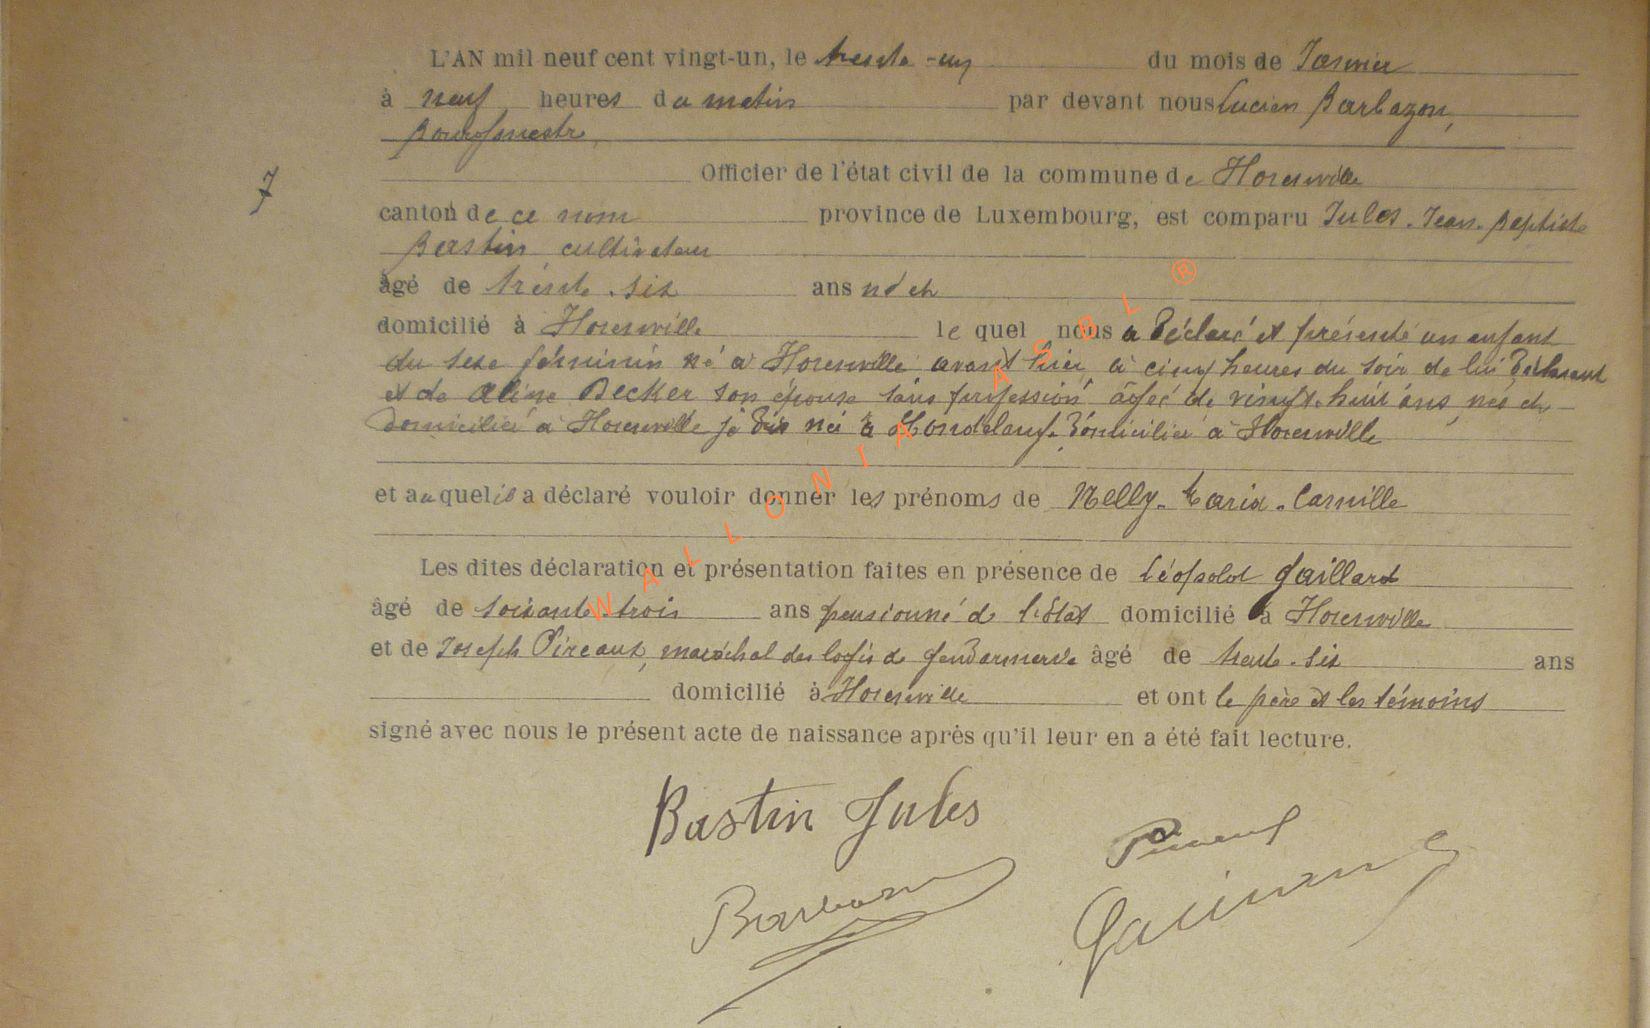 L'AN mil neuf cent vingt-un, le trente-un du mois de Janvier
à neuf heures du matin par devant nous Lucien Barbazon,
Bourgmestre,
Officier de l'état civil de la commune de Florenville
7
canton de ce nom province de Luxembourg, est comparu Jules-Jean-Baptiste
Bastin cultivateur
âgé de trente-six ans né et
domicilié à Florenville lequel nous a déclaré et présenté un enfant
du sexe féminin né à Florenville avant hier à cinq heures du soir de lui déclarant
et de Aline Decker son épouse sans profession âgée de vingt-huit ans, née et
domiciliée à Florenville je dis née à domiciliée à Florenville
et auquel il a déclaré vouloir donner les prénoms de Nelly-Maria-Camille
Les dites déclaration et présentation faites en présence de Léopold Gaillard
âgé de soixante-trois ans pensionné de l'Etat domicilié à Florenville
et de Joseph Pireaux, maréchal des logis de gendarmerie âgé de trente-six ans
domicilié à Florenville et ont le père et les témoins
signé avec nous le présent acte de naissance après qu'il leur en a été fait lecture.
Bastin Jules
Barbazon
WALLONIA ASBL ®